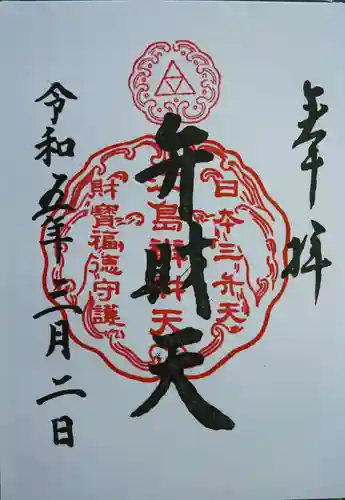 奉拝
日本三弁天
弁財天
島辨財天
財寶福徳守護
令和五年三月二日